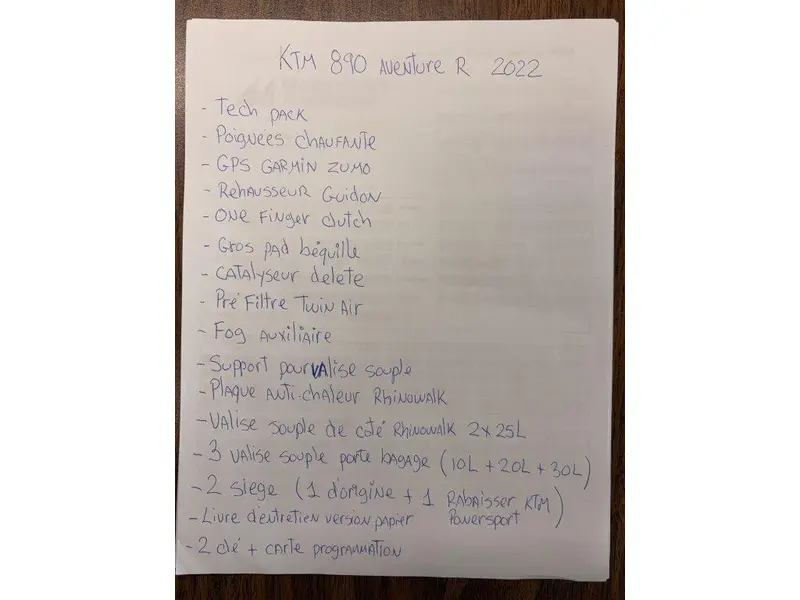 KTM 890 AVENTURE R 2022
- Tech PACK
- Poignees CHAUFANTE
- GPS GARMIN ZUMO
- REHAUSSEUR Guidon
- ONE Finger clutch
- Gros pad béquille
- CATAlyseur delete
- Pré Filtre Twin Air
- Fog AUXILIAIRE
- Support pour VAlise souple
- Plaque ANTI-chaleur RHINOWALK
- VALISE souple de coté RHINOWALK 2x25L
- 3 VAlise souple porte bagage (10L + 20L + 30L)
- 2 siege (1 d'origine + 1 RABAISSER KTM Powersport)
- Livre d'entretien version papier
- 2 clé + CARTE programmation